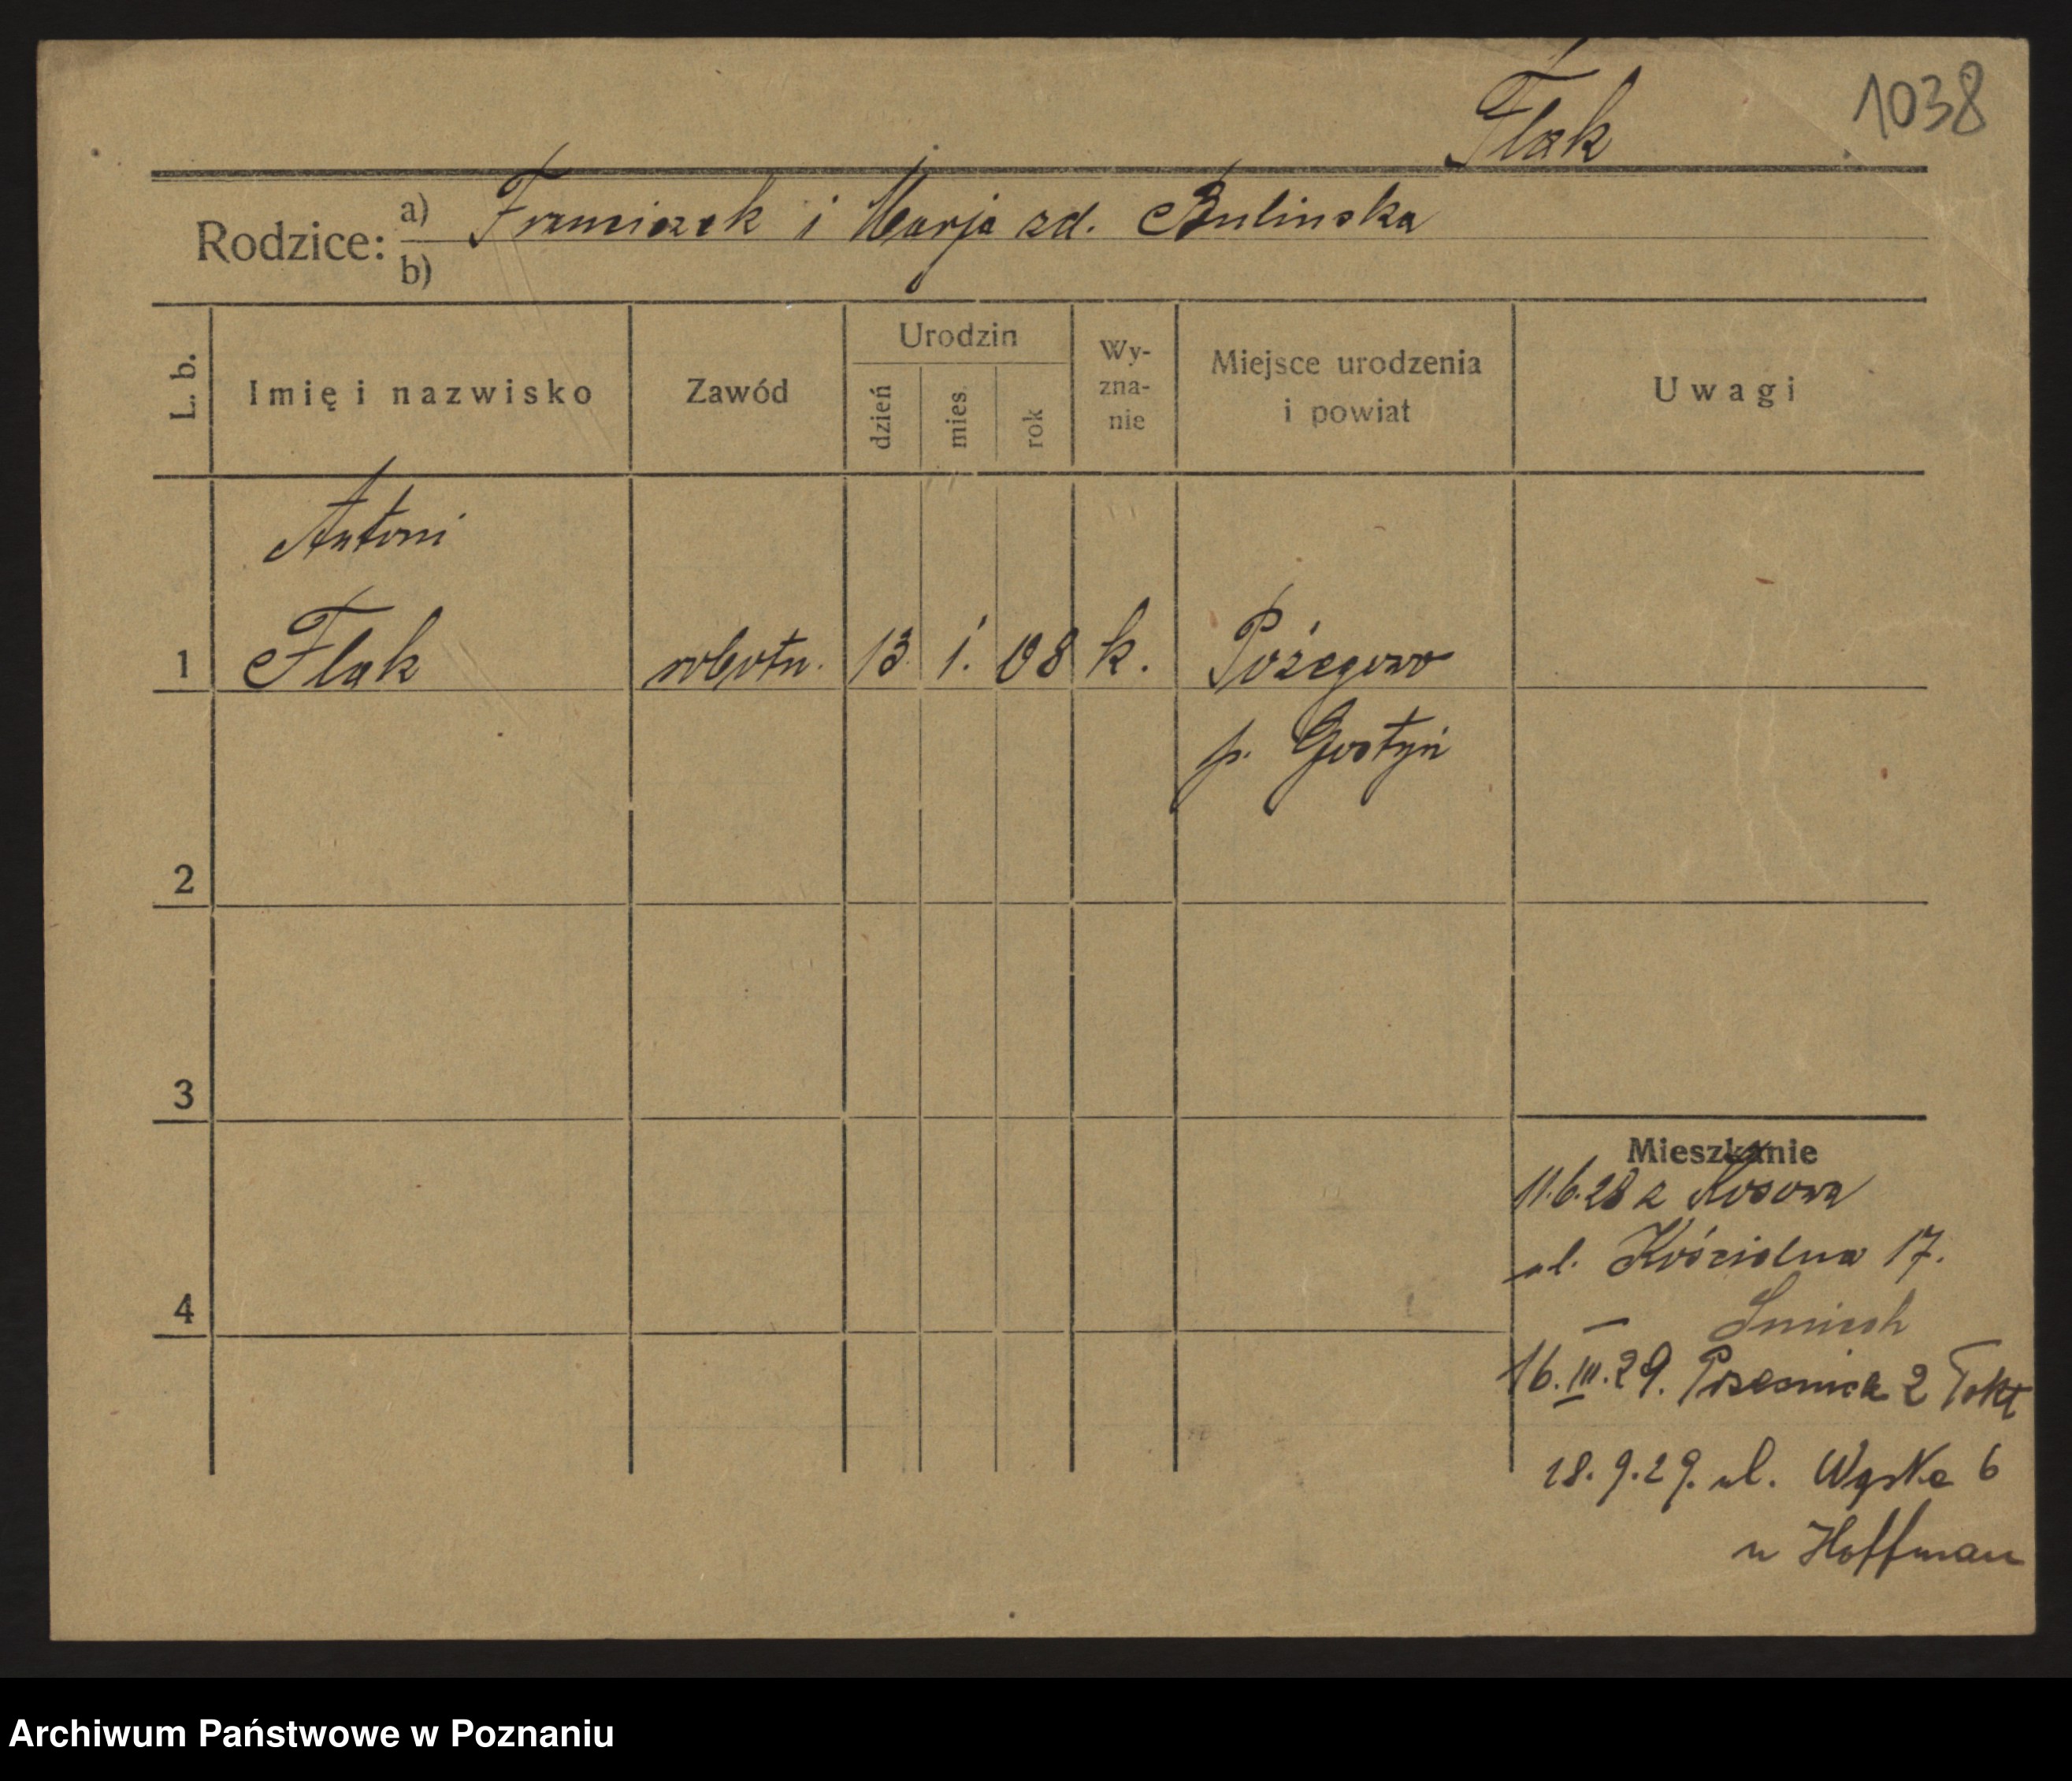 Flak
1038
Rodzice: a) Franciszek i Marja zd. Bulinska
b)
L. b.
Imię i nazwisko
Zawód
Urodzin
dzień
mies.
rok
Wy-
zna-
nie
Miejsce urodzenia
i powiat
Uwagi
Antoni
1 Flak robotn. 13. 1. 08 k. Pożegowo
p. Gostyń
2
3
4
Mieszkanie
11.6.28 z Kosowa
ul. Kościelna 17.
16.III.29.
18.9.29. ul. Wąska 6
u Hoffman
Archiwum Państwowe w Poznaniu